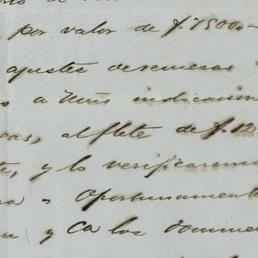 por valor de $.7500.-
ajustes de remesas
a Uds indicacion
cas, al flete de $.12
te, y lo verificaremos
a Oportunamente
y Ca los